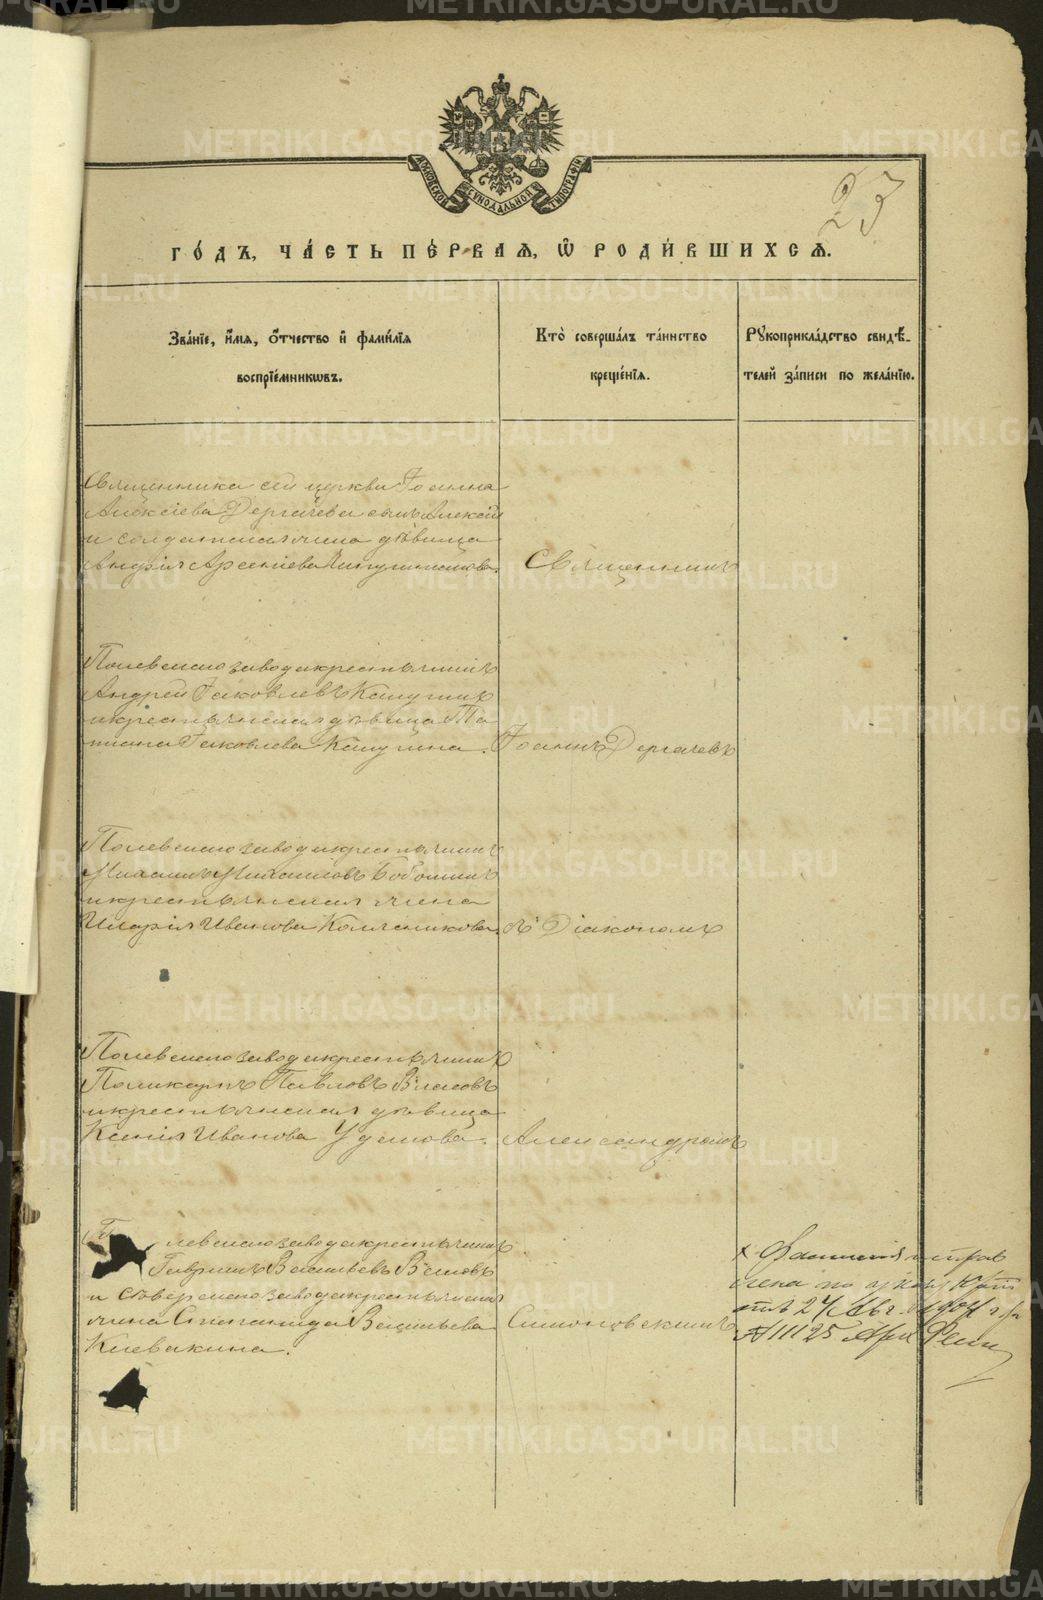 МОСКОВСКОЙ СѴНОДАЛЬНОЙ ТИПОГРАФІИ
23
ГО́ДЪ, ЧА́СТЬ ПЕ́РВАЯ, Ѽ РОДИ́ВШИХСЯ.
Зва́нїе, и҆́мѧ, ѻ҆́тчество и҆ фами́лїѧ
воспрїе́мникѡвъ.
Кто̀ соверша́лъ та́инство
креще́нїѧ.
Рꙋкоприкла́дство свидѣ́-
телей за́писи по жела́нїю.
Священника сей церкви Іоанна
Алексіева Дергачева сынъ Алексій
и солдатская дѣвица
Арсеніева
Священникъ
Полевскаго завода крестьянинъ
Андрей Іаковлевъ Калугинъ
и крестьянская дѣвица Та
тіана Іаковлева Калугина.
Іоаннъ Дергачевъ
Полевскаго завода крестьянинъ
Михаилъ Михаиловъ
и крестьянская жена
Марія Иванова
съ Діакономъ
Полевскаго завода крестьянинъ
Поликарпъ Павловъ
и крестьянская дѣвица
Ксенія Иванова
Александромъ
левскаго завода крестьянинъ
Гавріилъ Васильевъ
и Сѣверскаго завода крестьянская
жена Степанида Васильева
Кивакина.
Симоновскимъ
х Фамилія исправ
лена по указу
24 Авг. 1904 г. за
№ 11125
METRIKI.GASO-URAL.RU